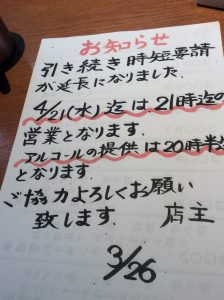 お知らせ
引き続き時短要請
が延長になりました.
4/21(水)迄は21時迄の
営業となります.
アルコールの提供は20時半迄
となります.
ご協力よろしくお願い
致します 店主
3/26